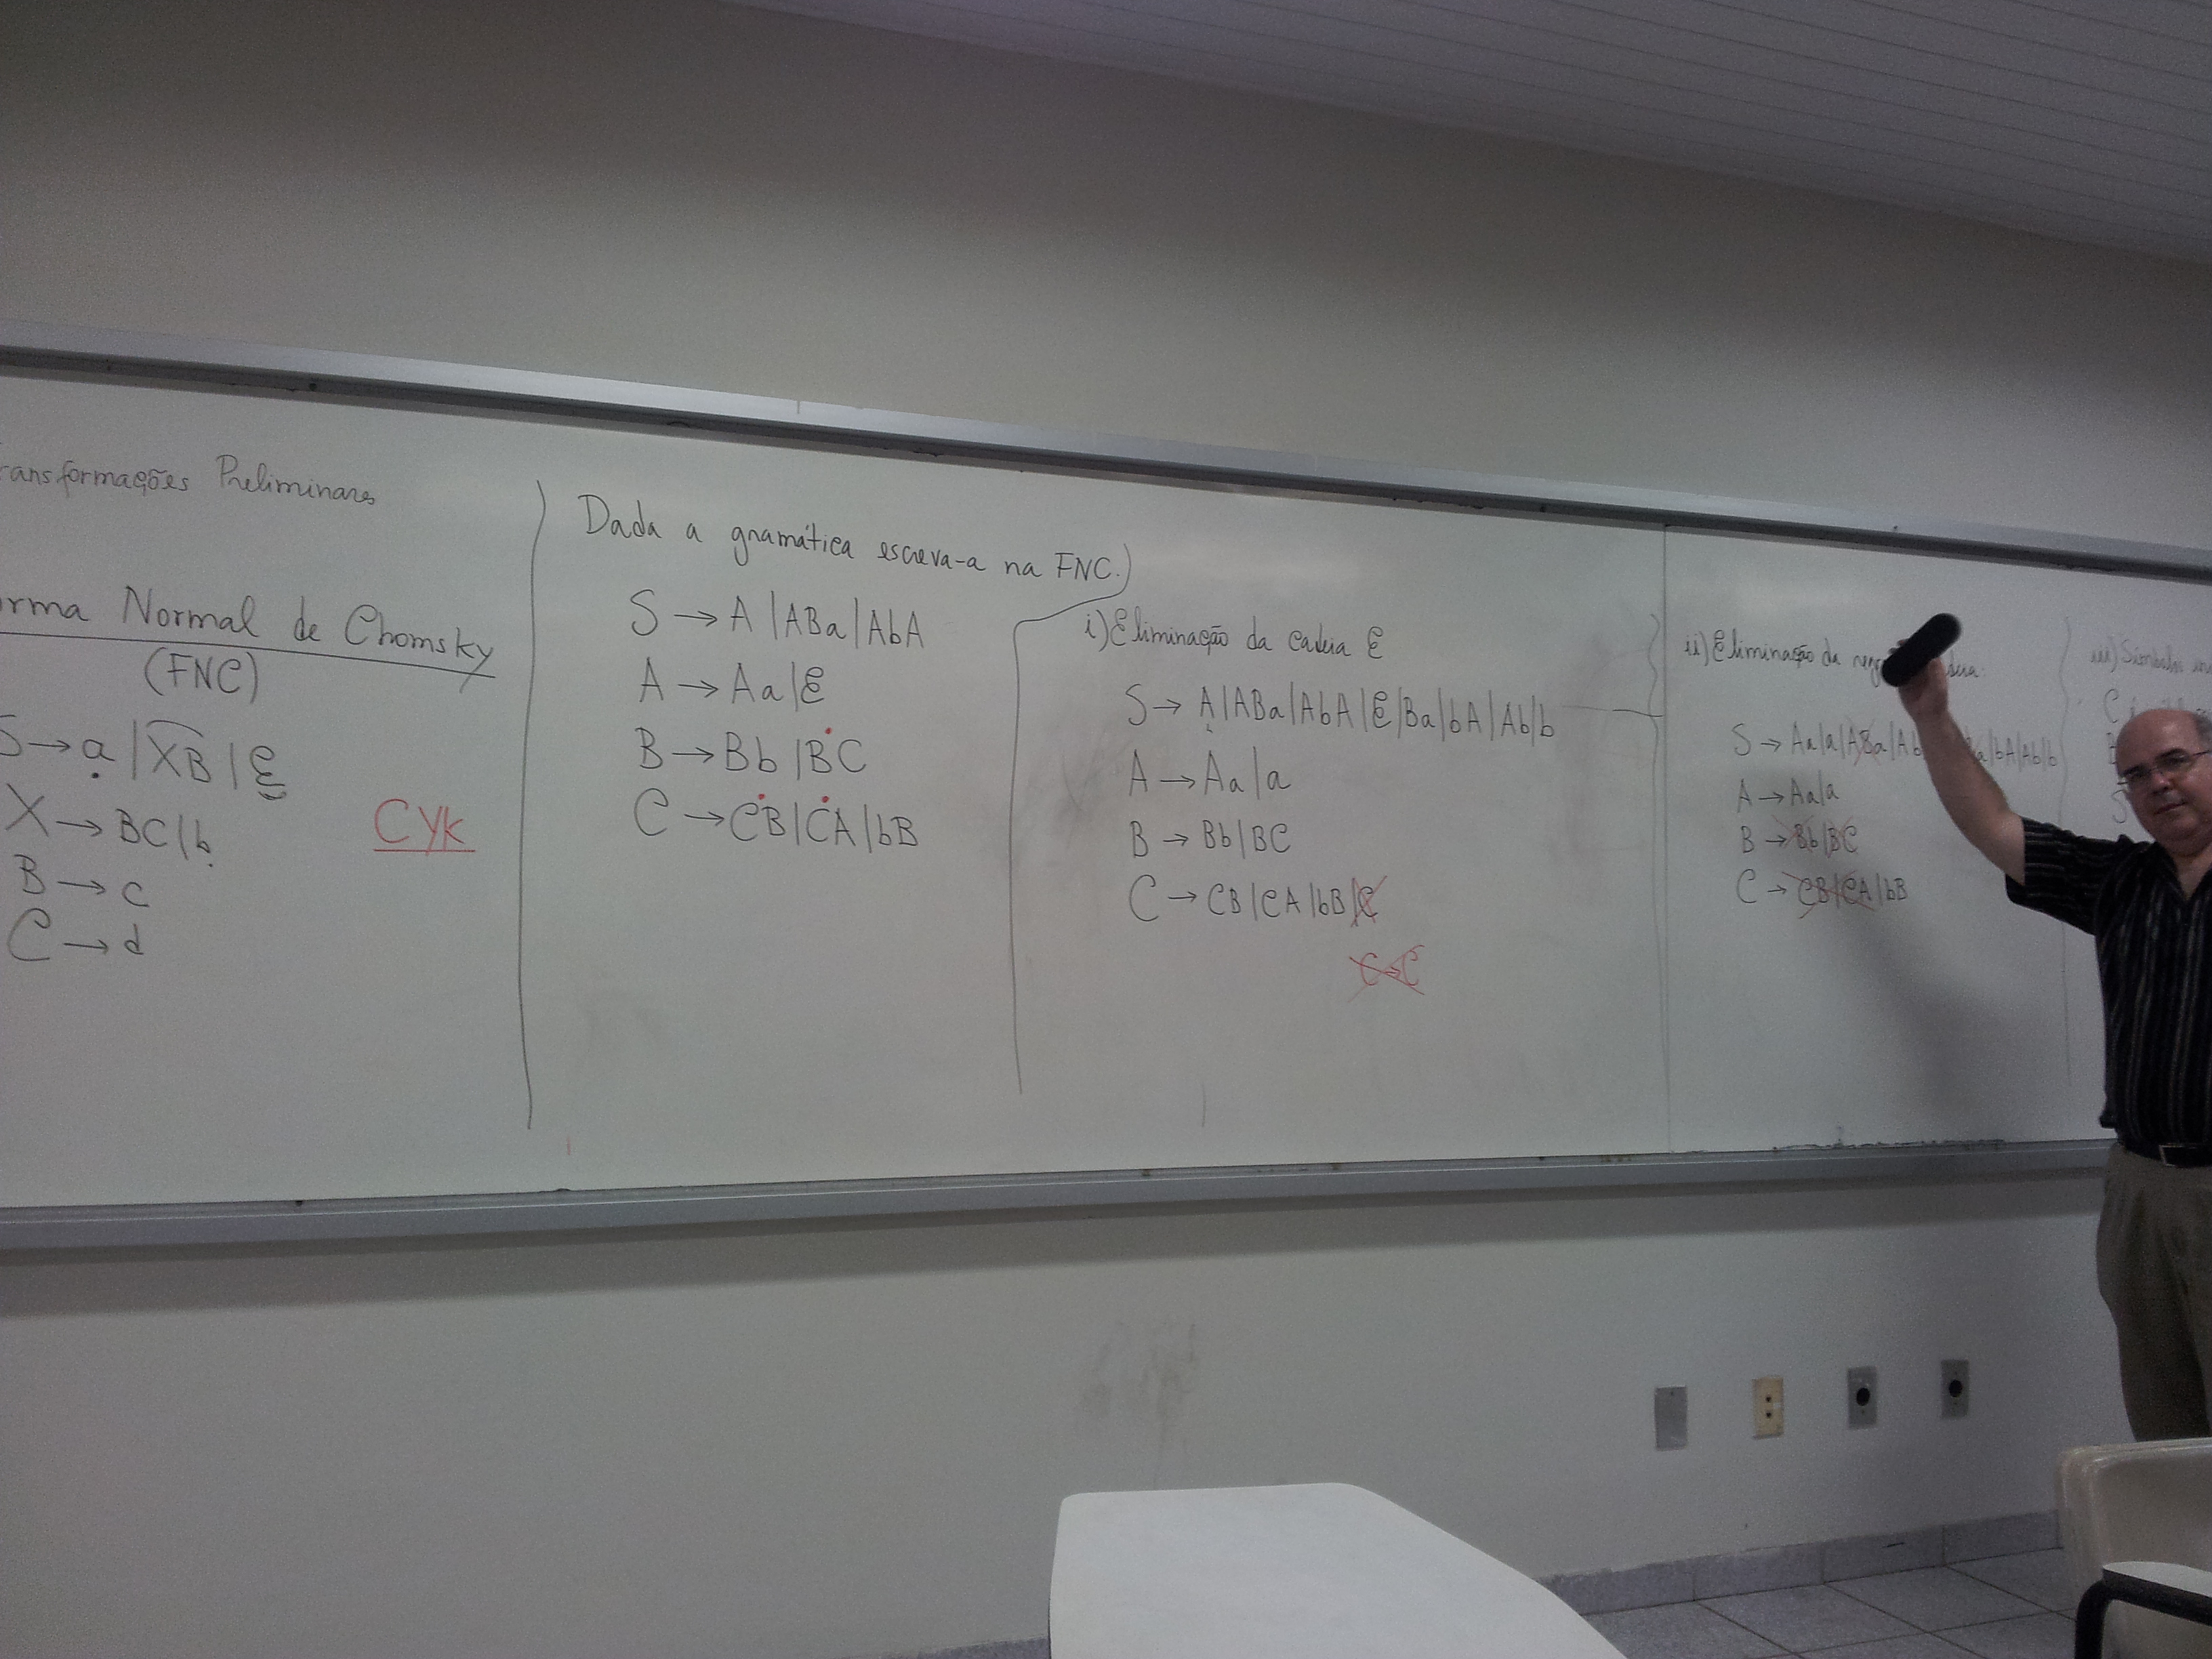 ransformações Preliminares
orma Normal de Chomsky
(FNC)
S → a | XB | ε
X → BC | b
B → c
C → d
CYK
Dada a gramática escreva-a na FNC.
S → A | ABa | AbA
A → Aa | ε
B → Bb | BC
C → CB | CA | bB
i) Eliminação da cadeia ε
S → A | ABa | AbA | ε | Ba | bA | Ab | b
A → Aa | a
B → Bb | BC
C → CB | CA | bB | C
C → C
ii) Eliminação da
S → Aa | a | ABa | Ab a | bA | Ab | b
A → Aa | a
B → Bb | BC
C → CB | CA | bB
iii)
C
S